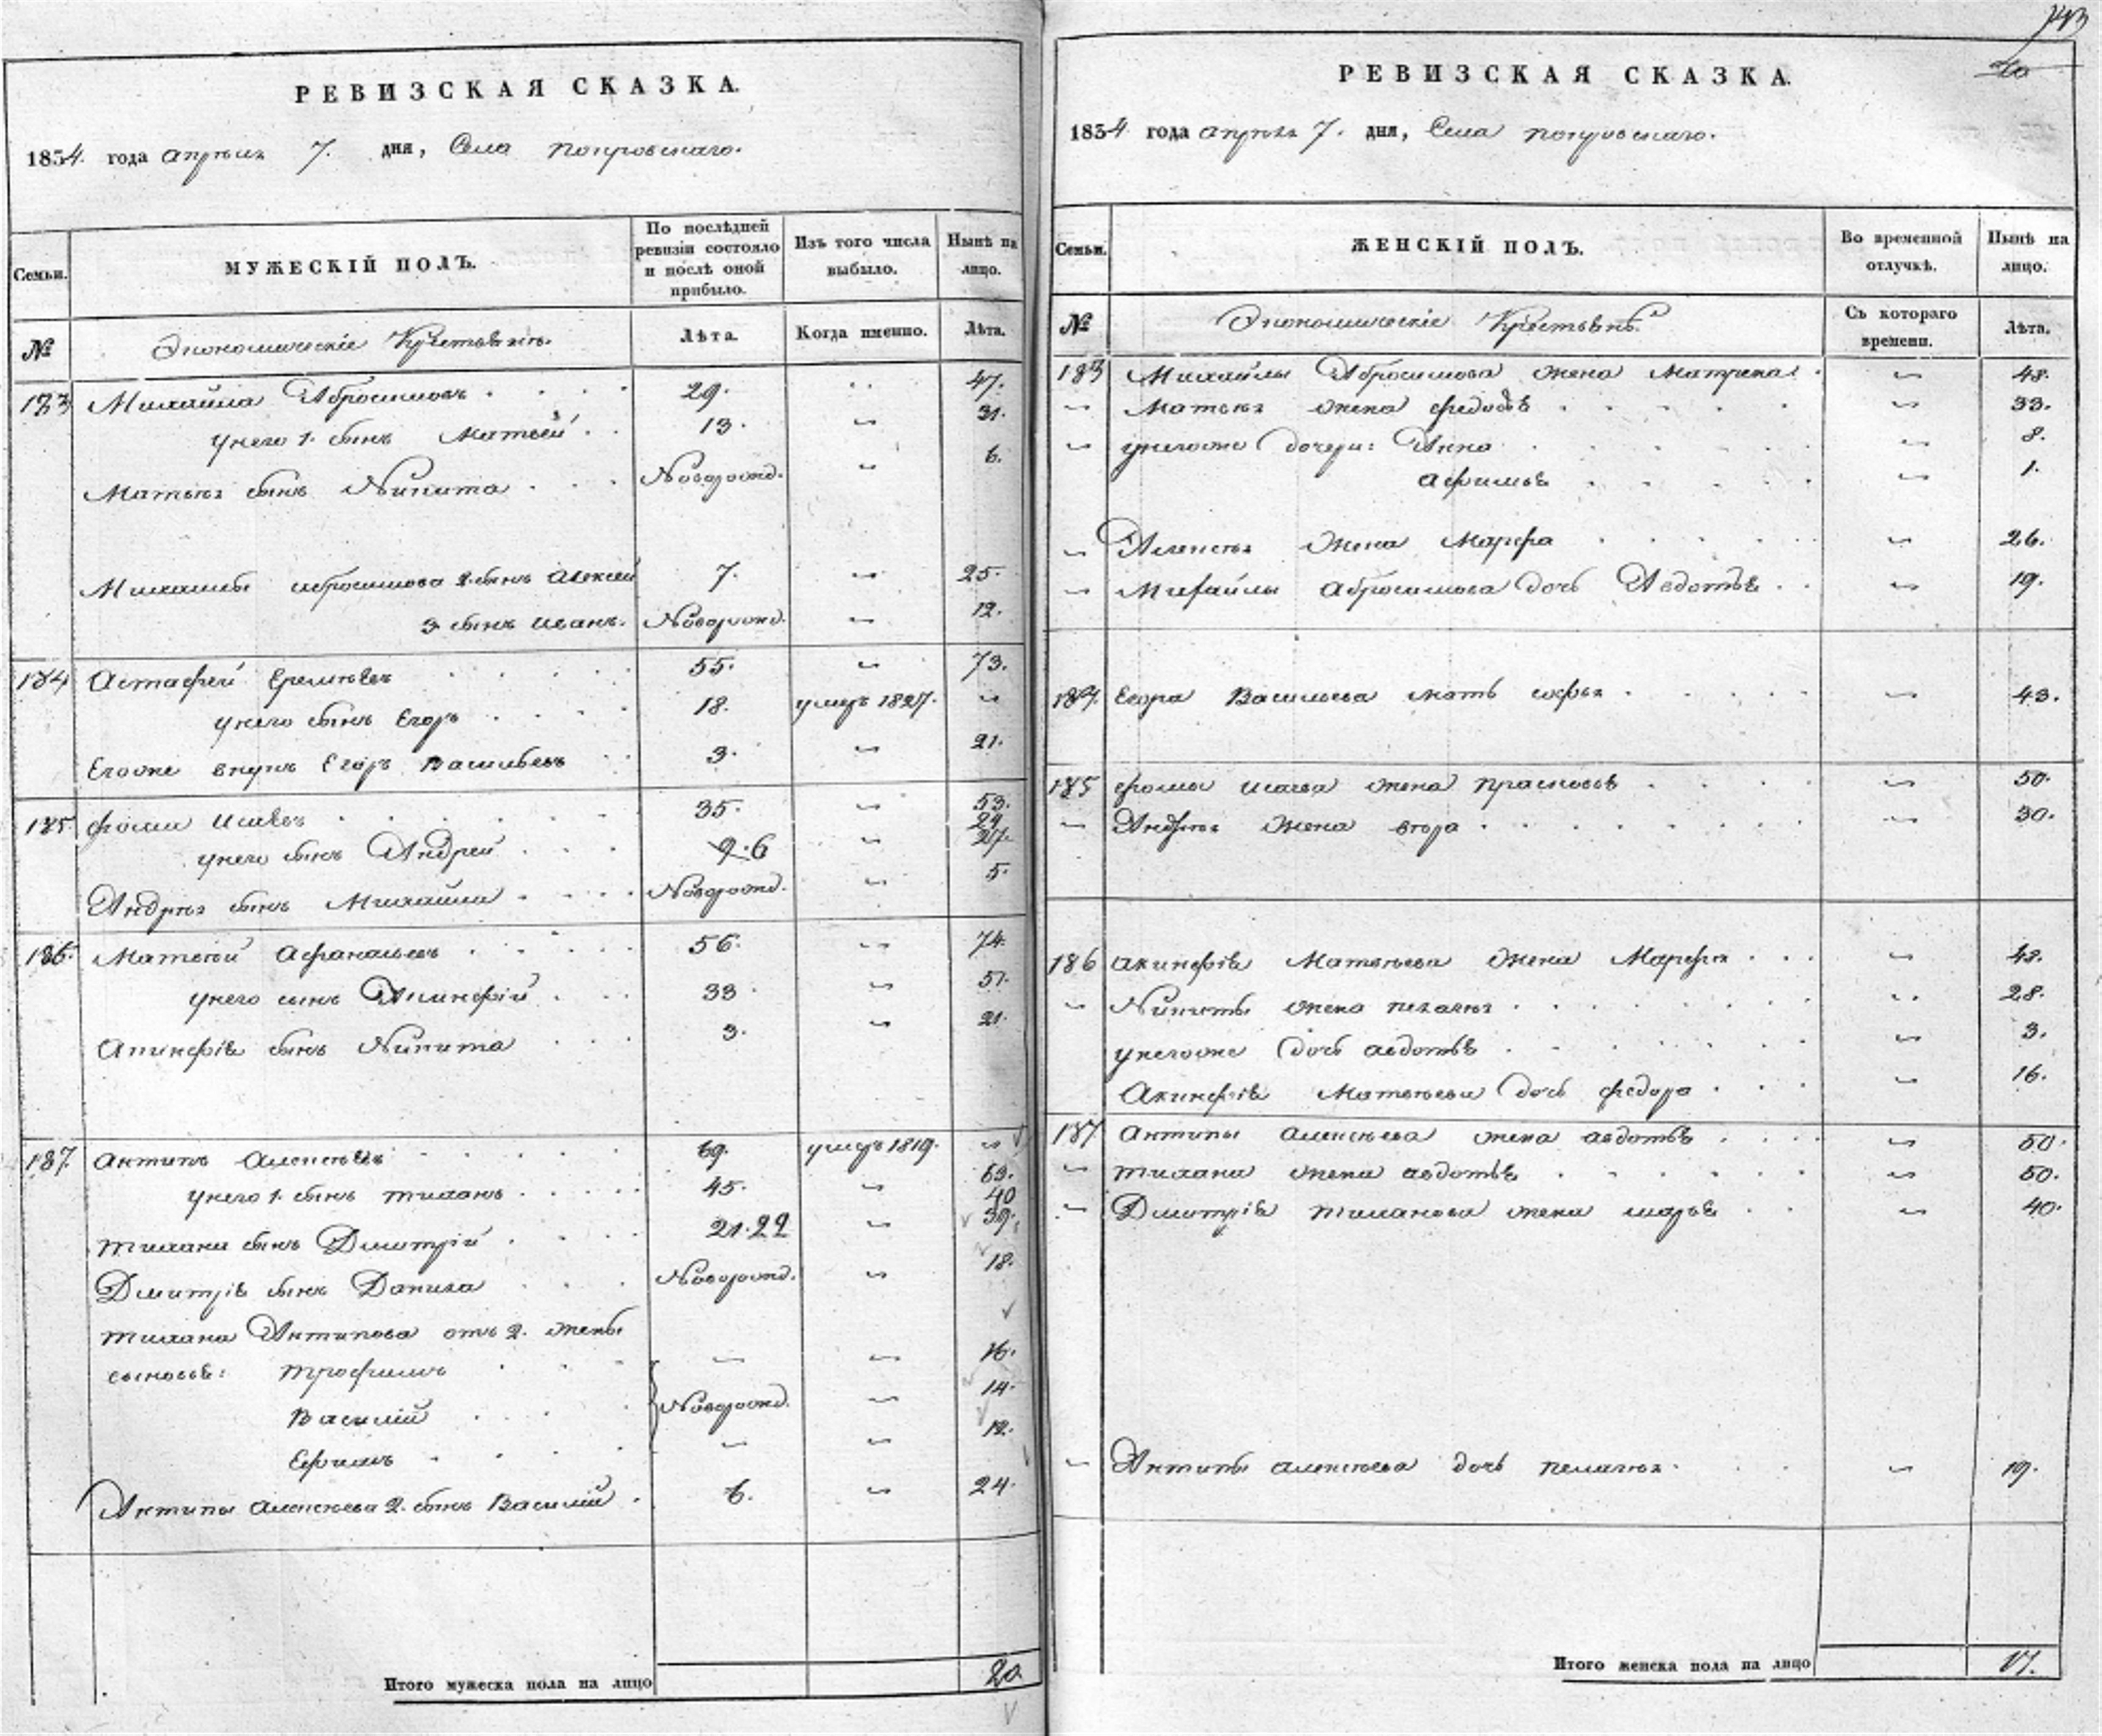 РЕВИЗСКАЯ СКАЗКА.
1834. года апреля 7. дня, Села покровскаго.
Семьи.
МУЖЕСКІЙ ПОЛЪ.
По послѣдней ревизіи состояло и послѣ оной прибыло.
Изъ того числа выбыло.
Нынѣ на лицо.
№
Экономическіе Крестьянъ.
Лѣта.
Когда именно.
Лѣта.
183 Михайла Абросимовъ 29. 47.
у него 1. сынъ Матвей 13. 31.
Матвея сынъ Никита Новорожд. 6.
Михайлы абросимова 2. сынъ алексей 7. 25.
3 сынъ иванъ. Новорожд. 12.
184 Астафей Еремѣевъ 55. 73.
у него сынъ Егоръ 18. умеръ 1827.
Егоже внукъ Егоръ васильевъ 3. 21.
185. фома исаевъ 35. 53.
у него сынъ Андрей 9.6 24 27.
Андрея сынъ Михайла Новорожд. 5.
186. Матвей афанасьевъ 56. 74.
у него сынъ Акинфій 33 51.
Акинфія сынъ Никита 3. 21.
187. антипъ алексѣевъ 69. умеръ 1819.
у него 1. сынъ тиханъ 45. 63.
тихана сынъ Дмитрій 21.22 40 39.
Дмитрія сынъ Данила Новорожд. 18.
тихана Антипова отъ 2. жены
сыновья: трофимъ 16.
василій Новорожд. 14.
Ефимъ 12.
Антипы алексѣева 2. сынъ василій 6. 24.
Итого мужеска пола на лицо 20.
РЕВИЗСКАЯ СКАЗКА.
1834. года апреля 7. дня, Села покровскаго.
Семьи.
ЖЕНСКІЙ ПОЛЪ.
Во временной отлучкѣ.
Нынѣ на лицо.
№
Экономическіе Крестьянъ.
Съ котораго времени.
Лѣта.
183 Михайлы Абросимова жена Матрена 48.
Матвея жена федосья 33.
у негоже дочери: Анна 8.
афимья 1.
Алексея жена Марфа 26.
Михайлы абросимова дочь Авдотья 19.
184. Егора Васильева мать софья 43.
185 фомы исаева жена прасковья 50.
Андрея жена 30.
186 акинфія Матвеева жена Марфа 48.
Никиты жена пелагея 28.
у негоже дочь авдотья 3.
Акинфія Матвеева дочь федора 16.
187 антипы алексѣева жена авдотья 50.
тихана жена авдотья 50.
Дмитрія тиханова жена марья 40.
Антипы алексѣева дочь пелагея. 19.
Итого женска пола на лицо 17.